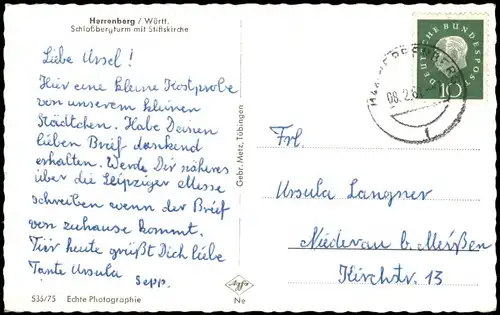 Herrenberg / Württ.
Schloßbergturm mit Stiftskirche
Liebe Ussel!
Hier eine kleine Kostprobe
von unserem kleinen
Städtchen. Habe Deinen
lieben Brief dankend
erhalten. Werde Dir näheres
über die Leipziger Messe
schreiben wenn der Brief
von zuhause kommt.
Für heute grüßt Dich liebe
Tante Ursula
Sepp.
535/75 Echte Photographie
Gebr. Metz, Tübingen
Agfa
Ne
DEUTSCHE BUNDESPOST
10
HERRENBERG
08.2.6
f
Frl.
Ursula Langner
Niederau b. Meißen
Kirchstr. 13